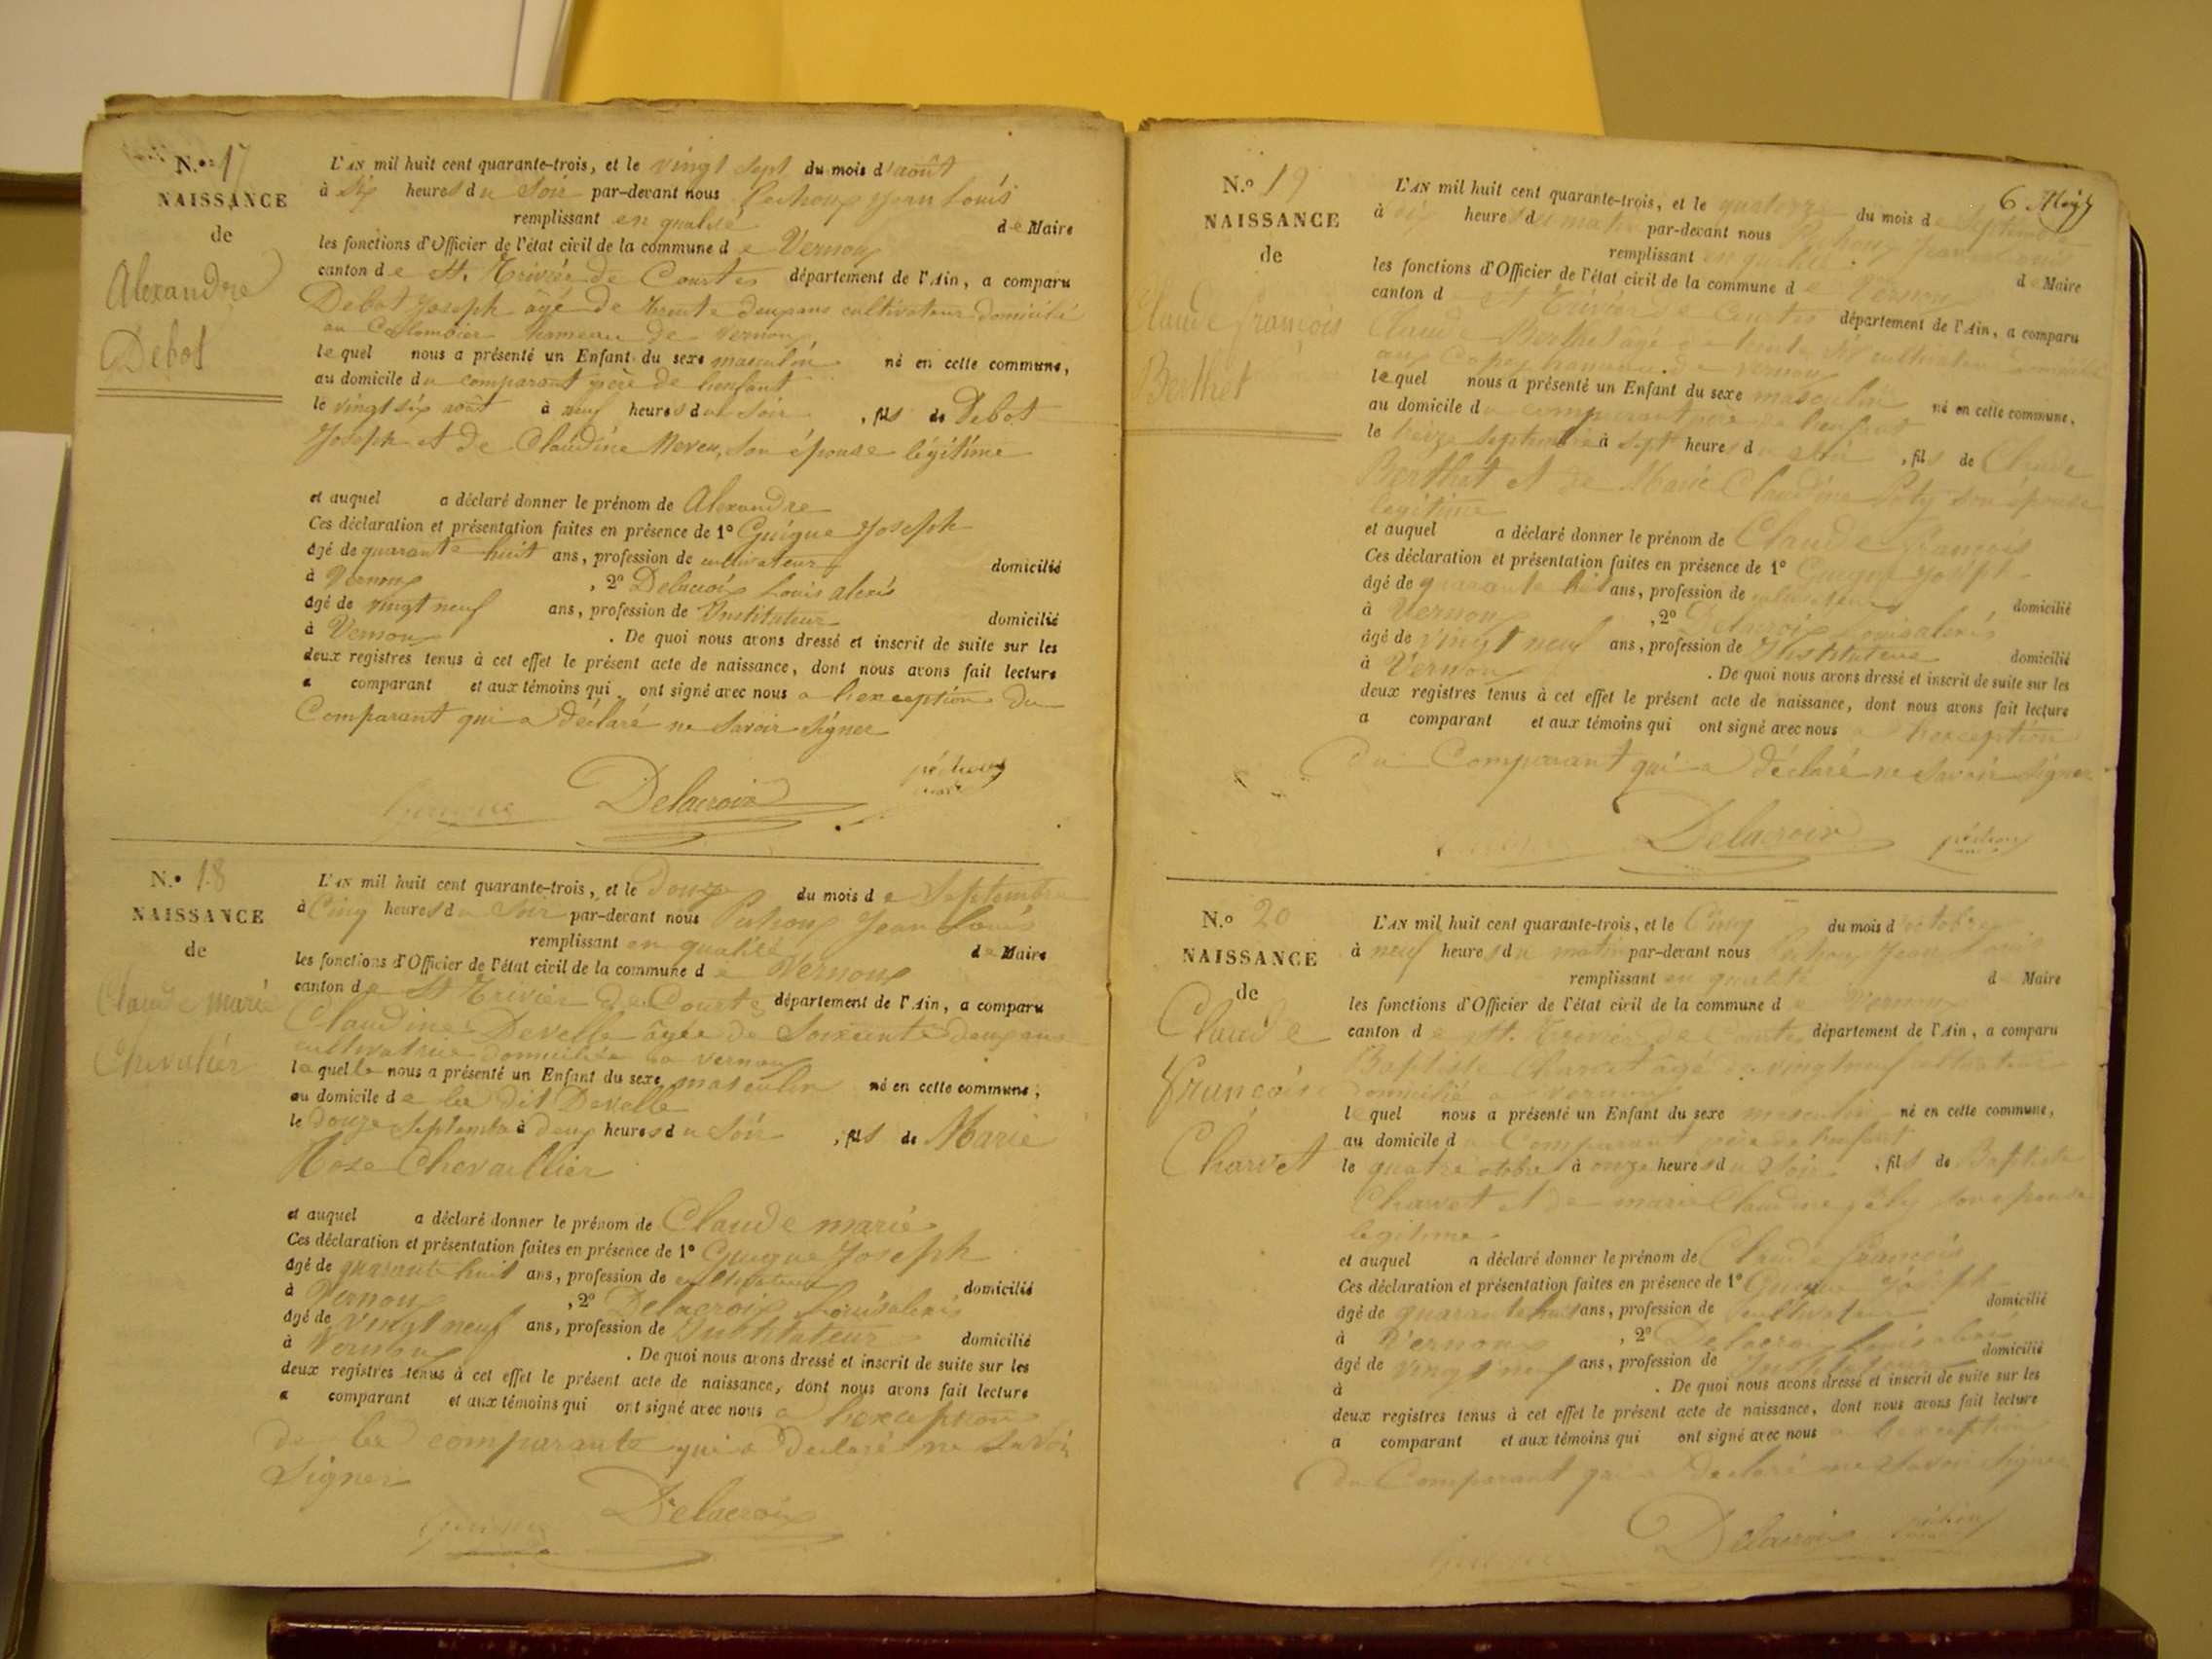 N.º 17
NAISSANCE
de
Alexandre
Debot
L'AN mil huit cent quarante-trois, et le vingt sept du mois d'août
à six heures du soir par-devant nous Pechoux Jean Louis
remplissant en qualité de Maire
les fonctions d'Officier de l'état civil de la commune de Vernoux
canton de St. Trivier de Courtes département de l'Ain, a comparu
Debot Joseph âgé de trente deux ans cultivateur domicilié
au Colombier hameau de Vernoux
lequel nous a présenté un Enfant du sexe masculin né en cette commune,
au domicile du comparant père de l'enfant
le vingt six août à neuf heures du soir, fils de Debot
Joseph et de Claudine Neveu, son épouse légitime
et auquel a déclaré donner le prénom de Alexandre
Ces déclaration et présentation faites en présence de 1º Guigue Joseph
âgé de quarante huit ans, profession de cultivateur domicilié
à Vernoux, 2º Delacroix Louis alexis
âgé de vingt neuf ans, profession de Instituteur domicilié
à Vernoux. De quoi nous avons dressé et inscrit de suite sur les
deux registres tenus à cet effet le présent acte de naissance, dont nous avons fait lecture
a comparant et aux témoins qui ont signé avec nous a l'exception du
Comparant qui a déclaré ne savoir signer
Guigue Delacroix péchoux
maire
N.º 18
NAISSANCE
de
Claude marie
Chevalier
L'AN mil huit cent quarante-trois, et le Douze du mois de Septembre
à Cinq heures du soir par-devant nous Pechoux Jean Louis
remplissant en qualité de Maire
les fonctions d'Officier de l'état civil de la commune de Vernoux
canton de St Trivier de Courtes département de l'Ain, a comparu
Claudine Develle âgée de soixante deux ans
cultivatrice domiciliée à Vernoux
laquelle nous a présenté un Enfant du sexe masculin né en cette commune,
au domicile de la dit Develle
le douze Septembre à deux heures du soir, fils de Marie
Rose Chevallier
et auquel a déclaré donner le prénom de Claude marie
Ces déclaration et présentation faites en présence de 1º Guigue Joseph
âgé de quarante huit ans, profession de cultivateur domicilié
à Vernoux, 2º Delacroix Louis alexis
âgé de vingt neuf ans, profession de Instituteur domicilié
à Vernoux. De quoi nous avons dressé et inscrit de suite sur les
deux registres tenus à cet effet le présent acte de naissance, dont nous avons fait lecture
a comparant et aux témoins qui ont signé avec nous a l'exception
de la comparante qui a déclaré ne savoir
signer
Guigue Delacroix
6
N.º 19
NAISSANCE
de
Claude françois
Berthet
L'AN mil huit cent quarante-trois, et le quatorze du mois de Septembre
à six heures du matin par-devant nous Pechoux Jean Louis
remplissant en qualité de Maire
les fonctions d'Officier de l'état civil de la commune de Vernoux
canton d St Trivier de Courtes département de l'Ain, a comparu
Claude Berthet âgé de trente six cultivateur domicilié
au hameau de Vernoux
lequel nous a présenté un Enfant du sexe masculin né en cette commune,
au domicile du comparant père de l'enfant
le treize septembre à sept heures du soir, fils de Claude
Berthet et de Marie Claudine Pely son épouse
légitime
et auquel a déclaré donner le prénom de Claude françois
Ces déclaration et présentation faites en présence de 1º Guigue Joseph
âgé de quarante huit ans, profession de cultivateur domicilié
à Vernoux, 2º Delacroix Louis alexis
âgé de vingt neuf ans, profession de Instituteur domicilié
à Vernoux. De quoi nous avons dressé et inscrit de suite sur les
deux registres tenus à cet effet le présent acte de naissance, dont nous avons fait lecture
a comparant et aux témoins qui ont signé avec nous a l'exception
du Comparant qui a déclaré ne savoir signer
Guigue Delacroix péchoux
N.º 20
NAISSANCE
de
Claude
François
Charvet
L'AN mil huit cent quarante-trois, et le Cinq du mois d'octobre
à neuf heures du matin par-devant nous Pechoux Jean Louis
remplissant en qualité d Maire
les fonctions d'Officier de l'état civil de la commune de Vernoux
canton de St. Trivier de Courtes département de l'Ain, a comparu
Baptiste Charvet âgé de vingt neuf cultivateur
domicilié a Vernoux
lequel nous a présenté un Enfant du sexe masculin né en cette commune,
au domicile du Comparant père de l'enfant
le quatre octobre à onze heures du soir, fils de Baptiste
Charvet et de marie Claudine pely son épouse
légitime
et auquel a déclaré donner le prénom de Claude françois
Ces déclaration et présentation faites en présence de 1º Guigue Joseph
âgé de quarante huit ans, profession de cultivateur domicilié
à Vernoux, 2º Delacroix Louis alexis
âgé de vingt neuf ans, profession de Instituteur domicilié
à . De quoi nous avons dressé et inscrit de suite sur les
deux registres tenus à cet effet le présent acte de naissance, dont nous avons fait lecture
a comparant et aux témoins qui ont signé avec nous a l'exception
du Comparant qui a déclaré ne savoir signer
Guigue Delacroix péchoux